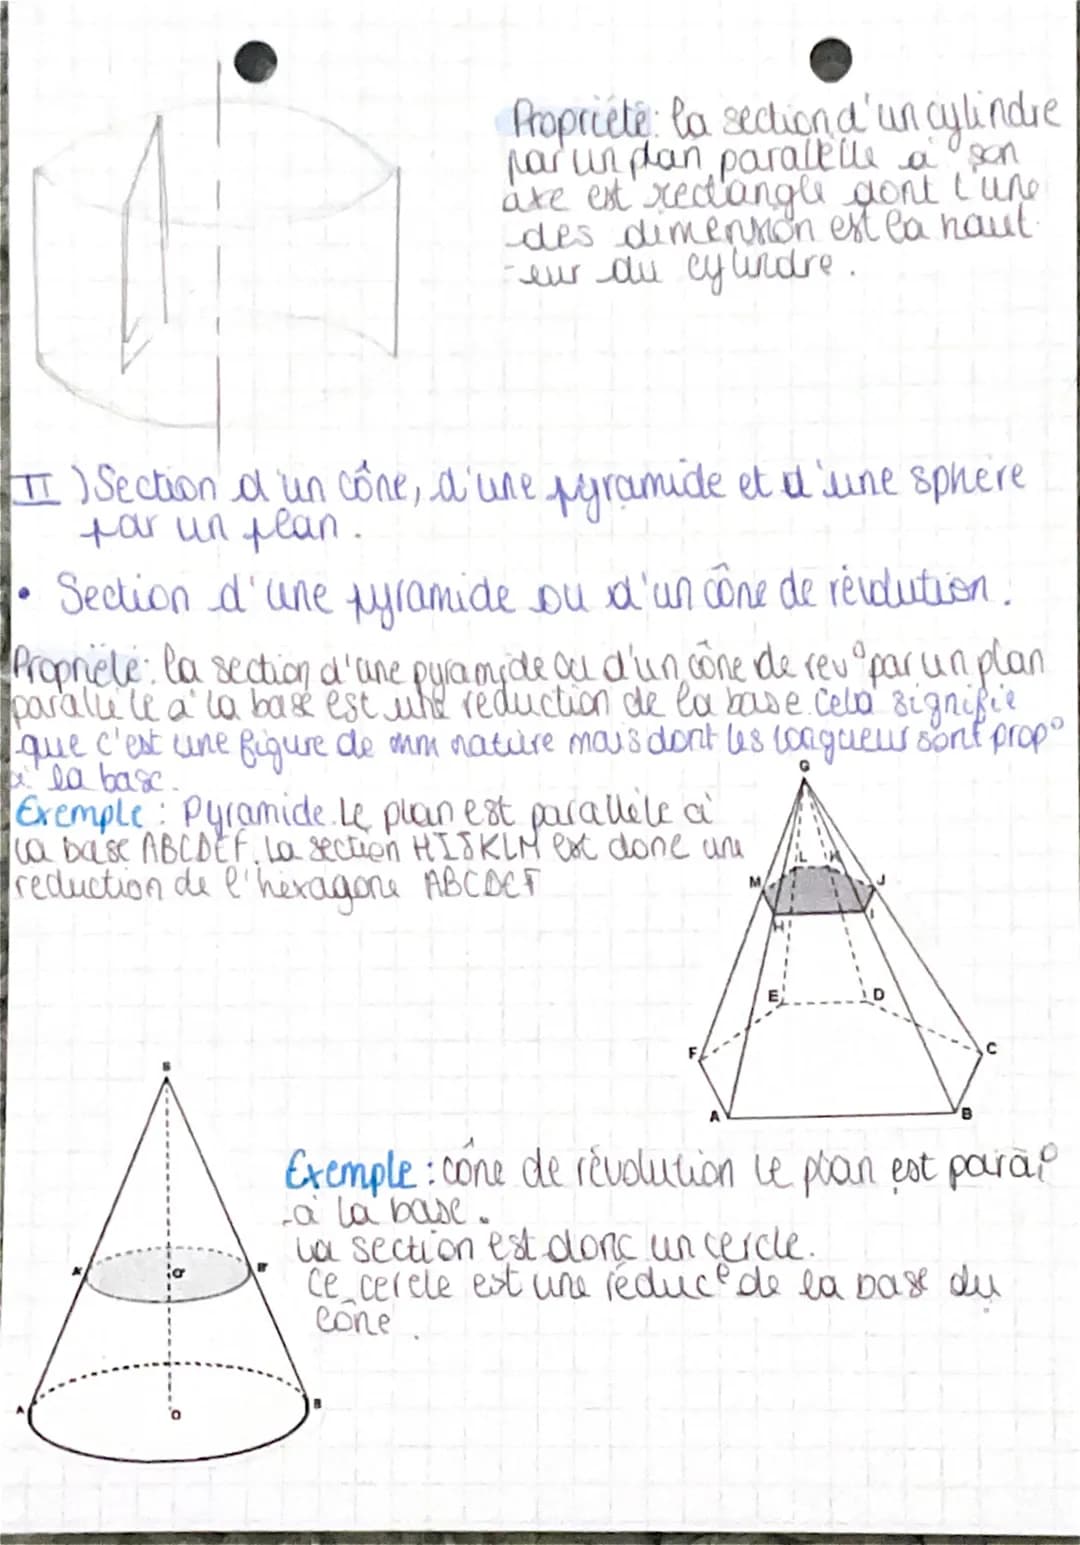 Propriété: la section d'un cylindre
par un plan parallèlle à son
axe est rectangle dont l'une
des dimension est la haut
-eur du cylindre.
II) Section d'un cône, d'une pyramide et d'une sphère
par un plan.
• Section d'une pyramide ou d'un cône de révolution.
Propriété: la section d'une pyramide ou d'un cône de rev° par un plan
parallèle à la base est une réduction de la base. Cela signifie
que c'est une figure de mm nature mais dont les longueur sont prop°
à la base.
Exemple: Pyramide. Le plan est parallèle à
la base ABCDEF. La section HIJKLM est donc une
reduction de l'hexagone ABCDEF
G
L K
M J
H I
E D
F C
A B
S
A' O' B'
A O B
Exemple: cône de révolution le plan est paral°
à la base.
La section est donc un cercle.
Ce cercle est une réduc° de la base du
cône.